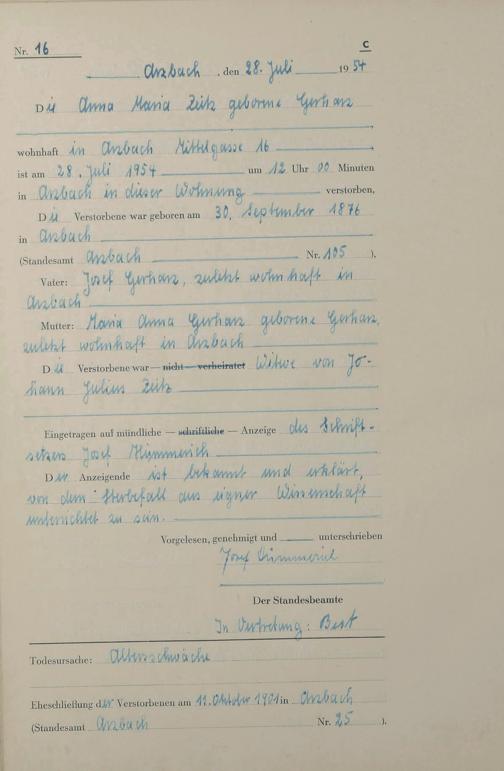 Nr. 16
C
Arzbach, den 28. Juli 1954
Die Anna Maria Zeitz geborene Gerharz
wohnhaft in Arzbach Mittelgasse 16
ist am 28. Juli 1954 um 12 Uhr 00 Minuten
in Arzbach in dieser Wohnung verstorben,
Die Verstorbene war geboren am 30. September 1876
in Arzbach
(Standesamt Arzbach Nr. 105 ).
Vater: Josef Gerharz, zuletzt wohnhaft in
Arzbach
Mutter: Maria Anna Gerharz geborene Gerharz,
zuletzt wohnhaft in Arzbach
Die Verstorbene war — nicht — verheiratet Witwe von Jo-
hann Julius Zeitz
Eingetragen auf mündliche — schriftliche — Anzeige des Schrift-
setzers Josef Hümmerich
Der Anzeigende ist bekannt und erklärt,
von dem Sterbefall aus eigner Wissenschaft
unterrichtet zu sein.
Vorgelesen, genehmigt und unterschrieben
Josef Hümmerich
Der Standesbeamte
In Vertretung: Best
Todesursache: Altersschwäche
Eheschließung der Verstorbenen am 12. Oktober 1901 in Arzbach
(Standesamt Arzbach Nr. 25 ).